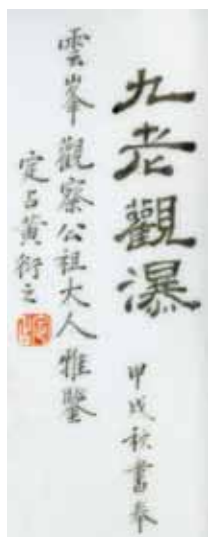 九老觀瀑
甲戌秋書奉
雲峯觀察公祖大人雅鑒
定占黃衍之